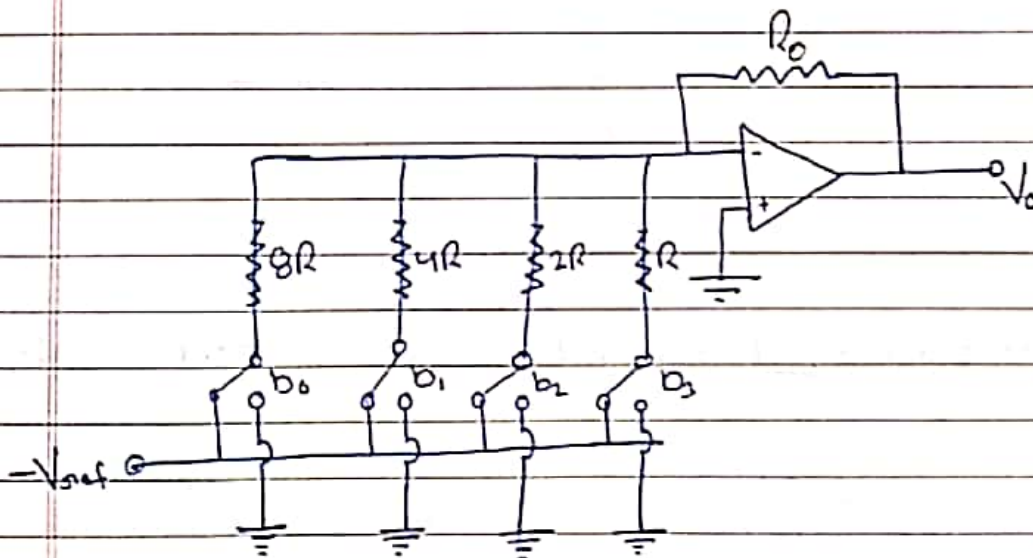 R₀
-
+
V₀
8R 4R 2R R
b₀ b₁ b₂ b₃
-Vref